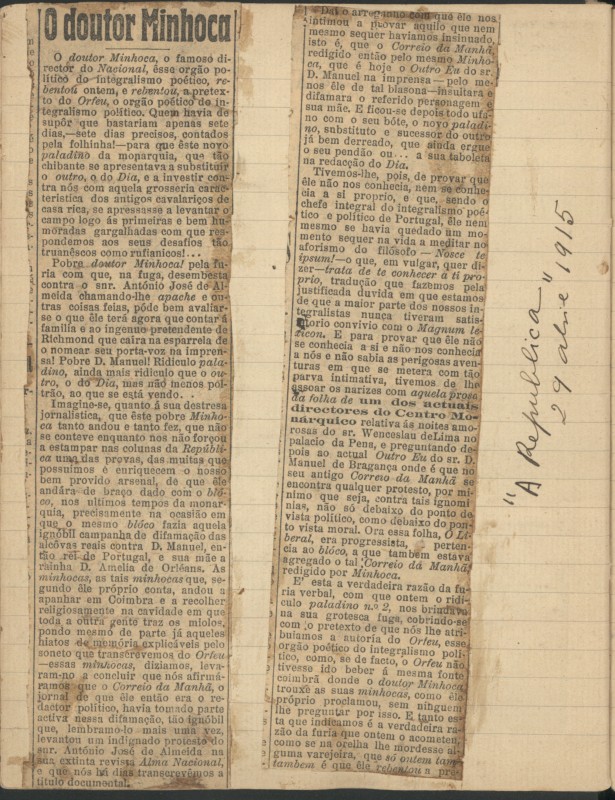 O doutor Minhoca
O doutor Minhoca, o famoso di-
rector do Nacional, ésse orgão po-
litico do integralismo poético, re-
bentou ontem, e rebentou, a pretex-
to do Orfeu, o orgão poético do in-
tegralismo politico. Quem havia de
supôr que bastariam apenas sete
dias,—sete dias precisos, contados
pela folhinha!—para que êste novo
paladino da monarquia, que tão
chibante se apresentava a substituir
o outro, o do Dia, e a investir con-
tra nós com aquela grosseria carac-
teristica dos antigos cavalariços de
casa rica, se apressasse a levantar o
campo logo ás primeiras e bem hu-
moradas gargalhadas com que res-
pondemos aos seus desafios tão
truanêscos como rufianicos!...
Pobre doutor Minhoca! pela fu-
ria com que, na fuga, desembesta
contra o snr. António José de Al-
meida chamando-lhe apache e ou-
tras coisas feias, póde bem avaliar-
se o que êle terá agora que contar á
familia e ao ingenuo pretendente de
Richmond que caíra na esparrela de
o nomear seu porta-voz na impren-
sa! Pobre D. Manuel! Ridiculo pala-
dino, ainda mais ridiculo que o ou-
tro, o do Dia, mas não menos pol-
trão, no que se está vendo...
Imagine-se, quanto á sua destresa
jornalistica, que êste pobre Minho-
ca tanto andou e tanto fez, que não
se conteve enquanto nos não forçou
a estampar nas colunas da Repúbli-
ca uma das provas, das muitas que
possuimos e enriquecem o nosso
bem provido arsenal, de que êle
andára de braço dado com o bló-
co, nos ultimos tempos da monar-
quia, precisamente na ocasião em
que o mesmo blóco fazia aquela
ignóbil campanha de difamação das
alcôvas reais contra D. Manuel, en-
tão rei de Portugal, e sua mãe a
rainha D. Amelia de Orléans. As
minhocas, as tais minhocas que, se-
gundo êle próprio conta, andou a
apanhar em Coimbra e a recolher
religiosamente na cavidade em que
toda a outra gente traz os miolos,
pondo mesmo de parte já aqueles
hiatos de memória explicáveis pelo
soneto que transcrevemos do Orfeu
—essas minhocas, diziamos, leva-
ram-no a concluir que nós afirmá-
ramos que o Correio da Manhã, o
jornal de que êle então era o re-
dactor politico, havia tomado parte
activa nessa difamação, tão ignóbil
que, lembrano-lo mais uma vez,
levantou um indignado protesto do
snr. António José de Almeida na
sua extinta revista Alma Nacional,
e que nós há dias transcrevêmos a
titulo documental.
Daí o arreganho com que êle nos
intimou a provar aquilo que nem
mesmo sequer haviamos insinuado,
isto é, que o Correio da Manhã,
redigido então pelo mesmo Minho-
ca, que é hoje o Outro Eu do sr.
D. Manuel na imprensa—pelo me-
nos êle de tal blasona—insultara e
difamara o referido personagem e
sua mãe. E ficou-se depois todo ufa-
no com o seu bôte, o novo paladi-
no, substituto e sucessor do outro
já bem derreado, que ainda ergue
o seu pendão ou... a sua taboleta
na redacção do Dia.
Tivemos-lhe, pois, de provar que
êle não nos conhecia, nem se conhe-
cia a si proprio, e que, sendo o
chefe integral do integralismo poé-
tico e politico de Portugal, êle nem
mesmo se havia quedado um mo-
mento sequer na vida a meditar no
aforismo do filósofo—Nosce te
ipsum!—o que, em vulgar, quer di-
zer—trata de te conhecer a ti pró-
prio, tradução que fazemos pela
justificada duvida em que estamos
de que a maior parte dos nossos in-
tegralistas nunca tiveram satis-
torio convivio com o Magnum le-
xicon. E para provar que êle não
se conhecia a si e não nos conhecia
a nós e não sabia as perigosas aven-
turas em que se metera com tão
parva intimativa, tivemos de lhe
assoar os narizes com aquela prosa
da folha de um dos actuais
directores do Centro Mo-
nárquico relativa ás noites amo-
rosas do sr. Wenceslau de Lima no
palacio da Pena, e preguntando de-
pois ao actual Outro Eu do sr. D.
Manuel de Bragança onde é que no
seu antigo Correio da Manhã se
encontra qualquer protesto, por mi-
nimo que seja, contra tais ignomi-
nias, não só debaixo do ponto de
vista politico, como debaixo do pon-
to vista moral. Ora essa folha, O Li-
beral, era progressista, e perten-
cia ao blóco, a que tambem estava
agregado o tal Correio da Manhã
redigido por Minhoca.
E' esta a verdadeira razão da fu-
ria verbal, com que ontem o ridi-
culo paladino n.º 2, nos brindava
na sua grotesca fuga, cobrindo-se
com o pretexto de que nós lhe atri-
buiamos a autoria do Orfeu, esse
orgão poético do integralismo poli-
tico, como, se de facto, o Orfeu não
tivesse ido beber á mesma fonte
coimbrã donde o doutor Minhoca
trouxe as suas minhocas, como êle
próprio proclamou, sem ninguem
lhe preguntar por isso. E tanto es-
ta que indicamos é a verdadeira ra-
zão da furia que ontem o acometeu,
como se na orelha lhe mordesse al-
guma varejeira, que só ontem tam-
tambem é que êle rebentou a pre-
"A Republica"
29 abril 1915